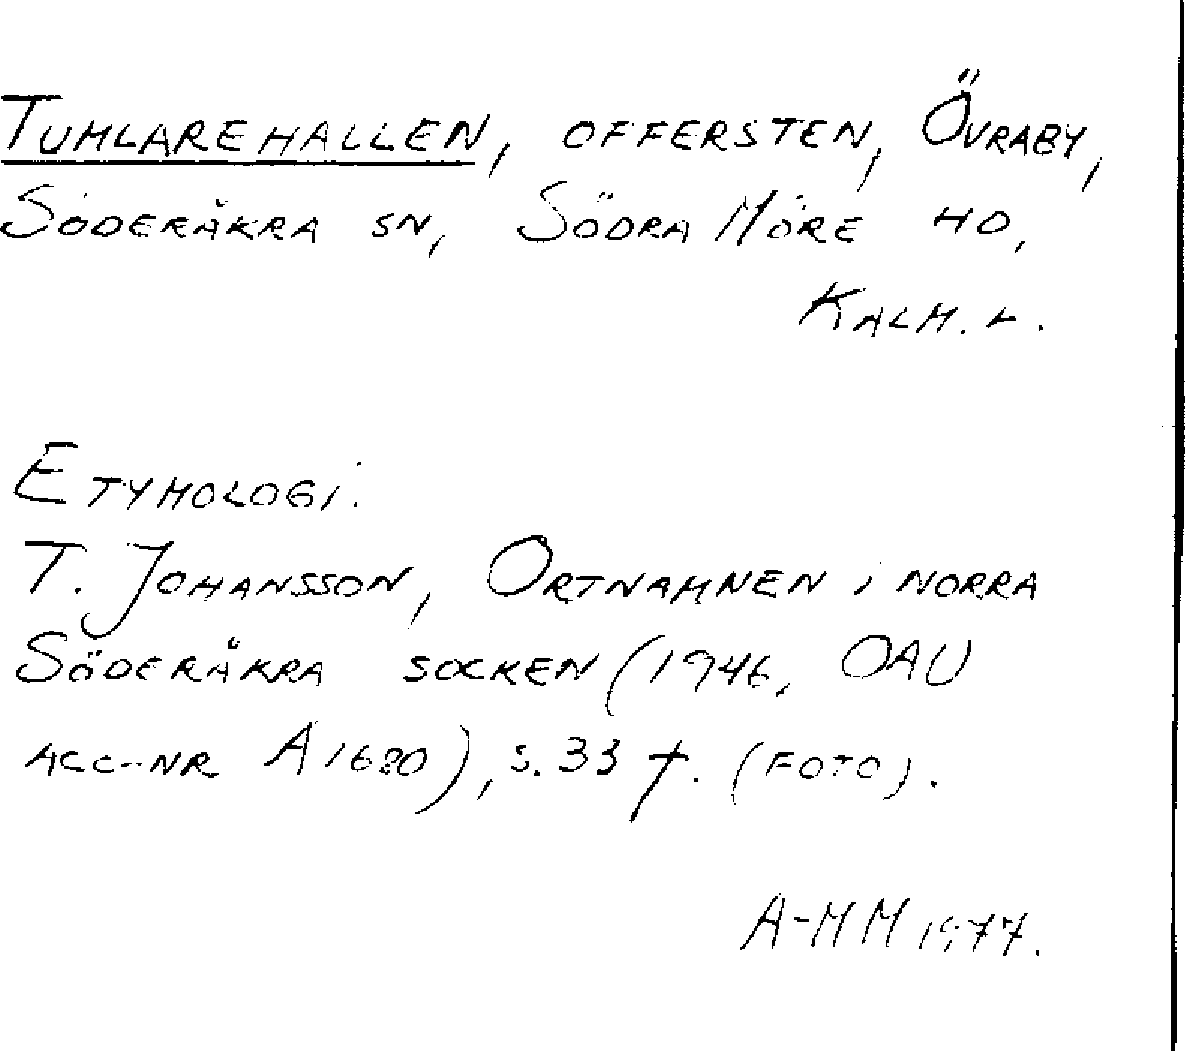 TUMLAREHALLEN, OFFERSTEN, ÖVRABY,
SÖDERÅKRA SN, SÖDRA MÖRE HD,
KALM. L.
ETYMOLOGI.
T. JOHANSSON, ORTNAMNEN I NORRA
SÖDERÅKRA SOCKEN (1946, OAU
ACC-NR A1680), S. 33 f. (FOTO).
A-MM 1977.